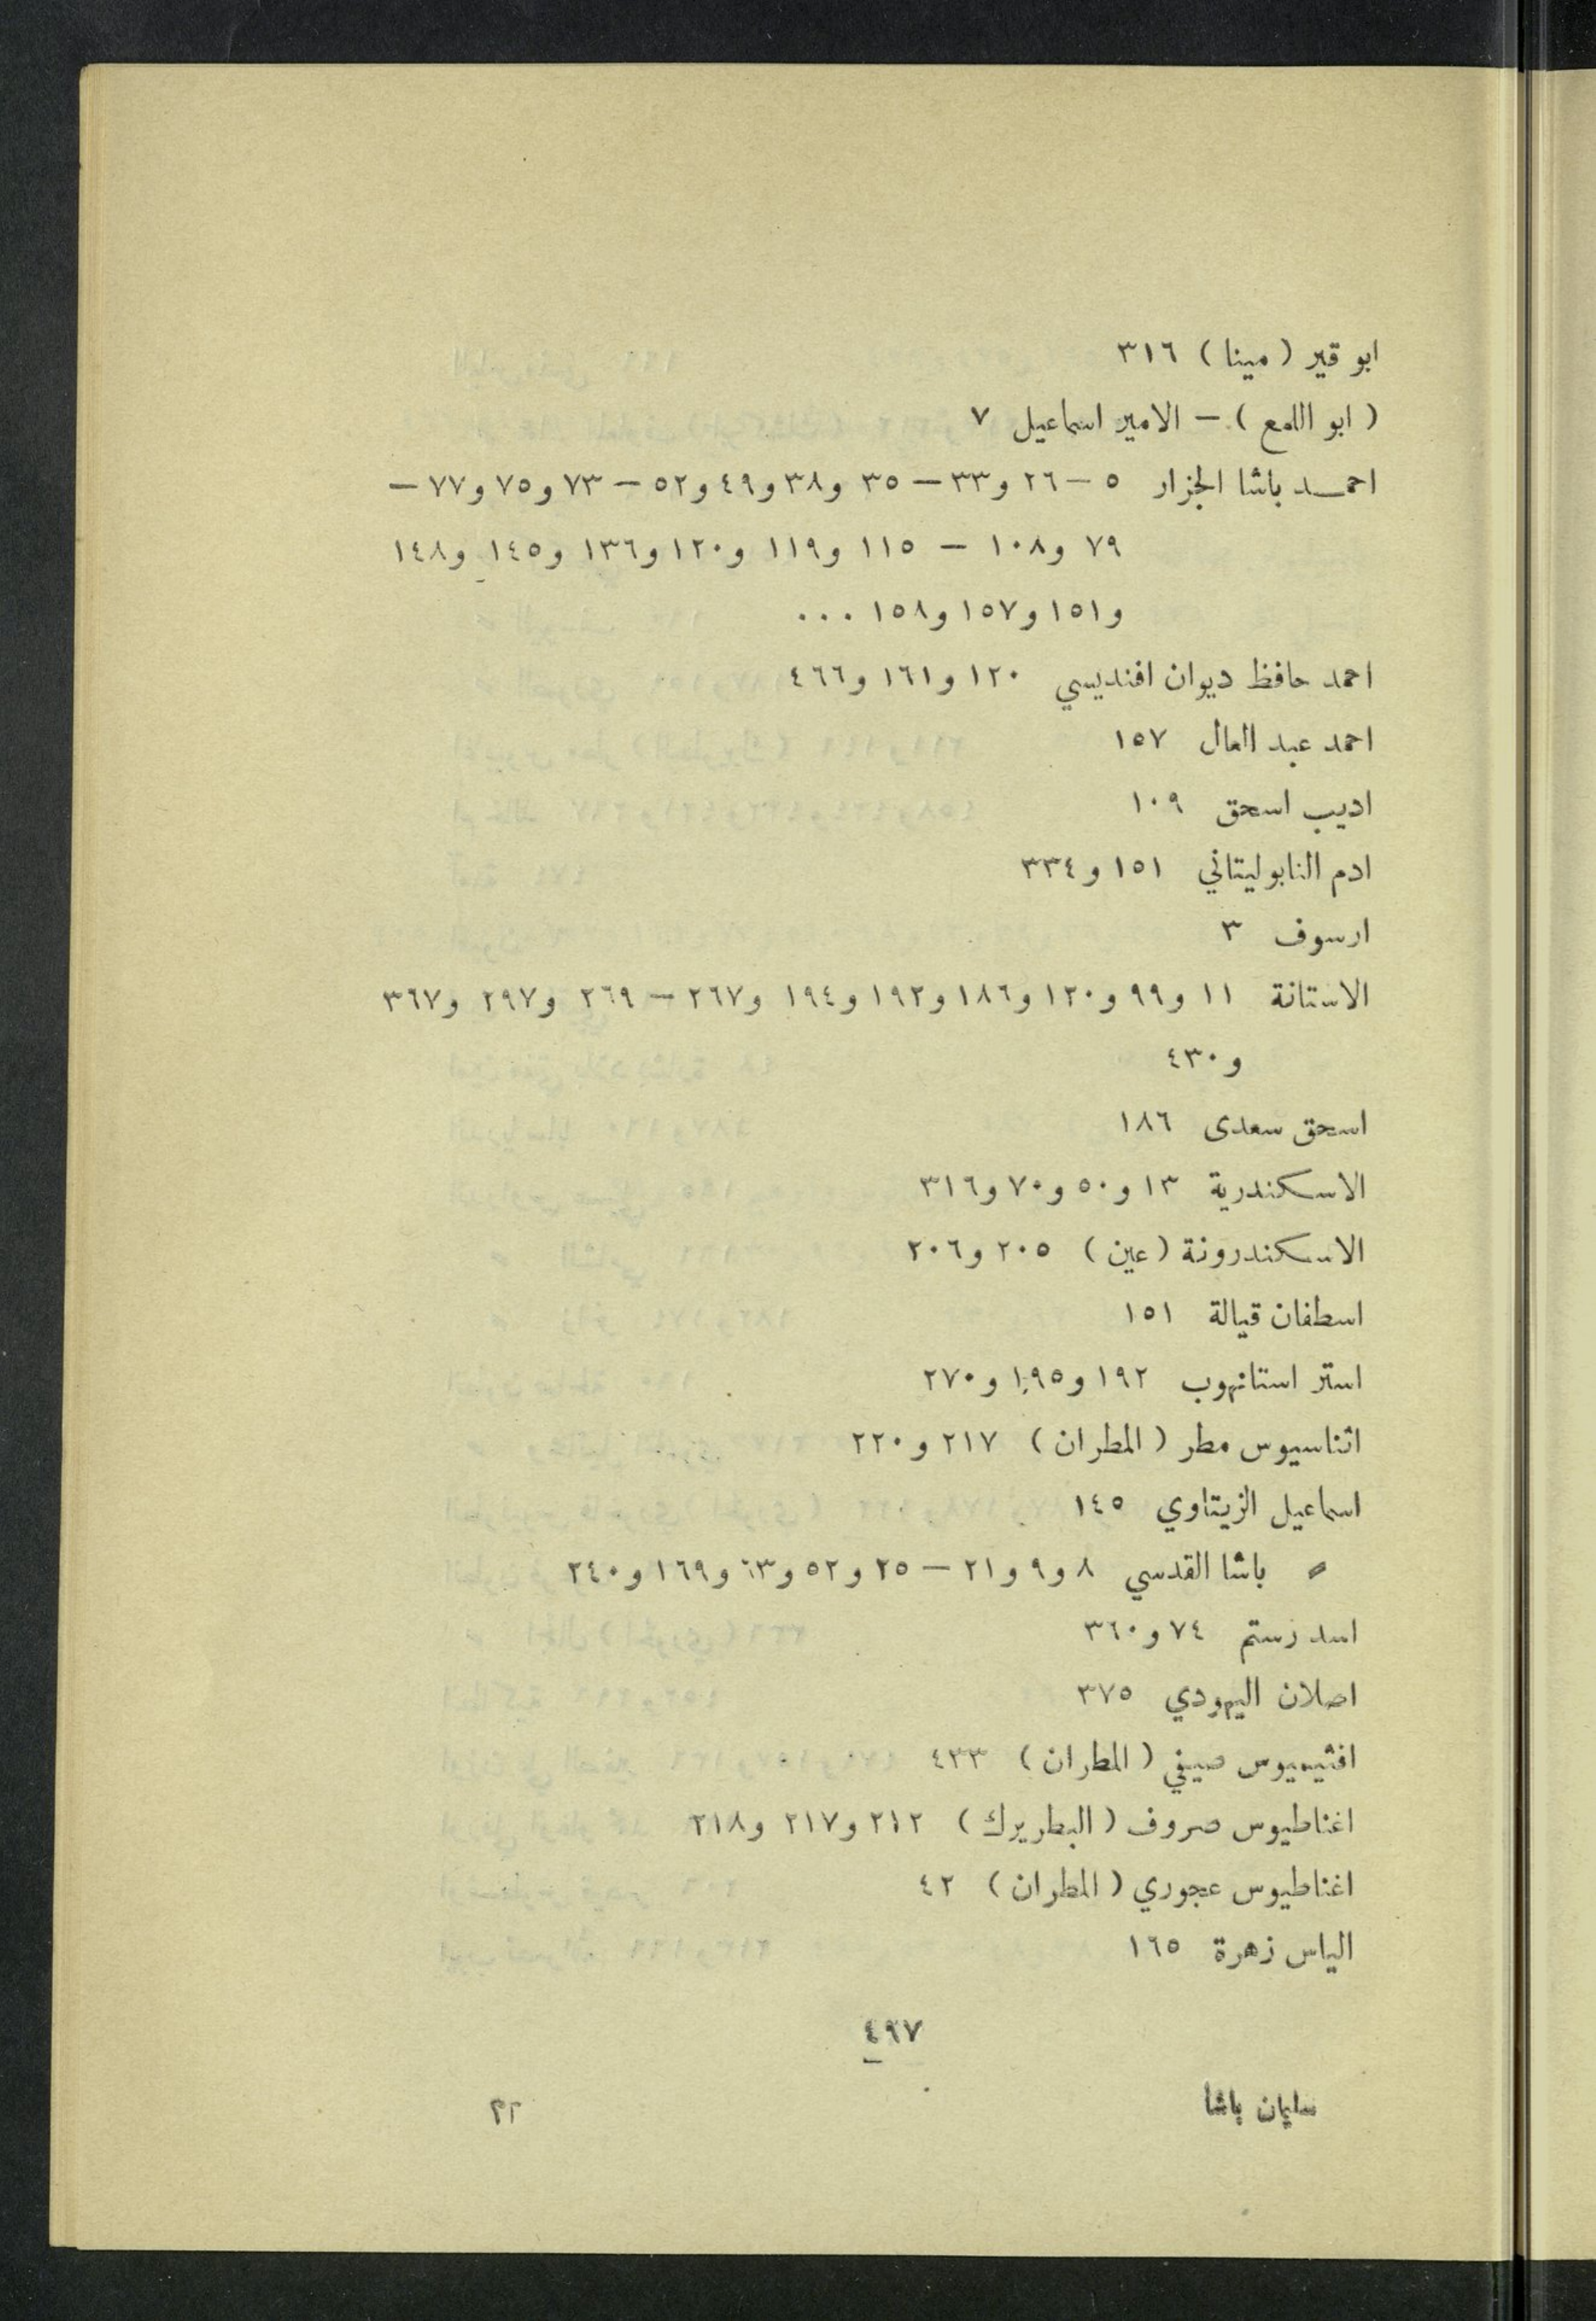 ابو قير ( مينا ) ٣١٦
( ابو اللمع ) – الامير اسماعيل ٧
احمـد باشا الجزار ٥ – ٢٦ و٣٣ – ٣٥ و٣٨ و٤٩ و٥٢ – ٧٣ و٧٥ و٧٧ –
٧٩ و١٠٨ – ١١٥ و١١٩ و١٢٠ و١٣٦ و١٤٥ و١٤٨
و١٥١ و١٥٧ و١٥٨ ...
احمد حافظ ديوان افنديسي ١٢٠ و١٦١ و٤٦٦
احمد عبد العال ١٥٧
اديب اسحق ١٠٩
ادم النابوليتاني ١٥١ و٣٣٤
ارسوف ٣
الاستانة ١١ و٩٩ و١٢٠ و١٨٦ و١٩٢ و١٩٤ و٢٦٧ – ٢٦٩ و٢٩٧ و٣٦٧
و٤٣٠
اسحق سعدى ١٨٦
الاسكندرية ١٣ و٥٠ و٧٠ و٣١٦
الاسكندرونة ( عين ) ٢٠٥ و٢٠٦
اسطفان قيالة ١٥١
استر استانهوب ١٩٢ و١٩٥ و٢٧٠
اثناسيوس مطر ( المطران ) ٢١٧ و٢٢٠
اسماعيل الزيتاوي ١٤٥
〃 باشا القدسي ٨ و٩ و٢١ – ٢٥ و٥٢ و٦٣ و١٦٩ و٢٤٠
اسد رستم ٧٤ و٣٦٠
اصلان اليهودي ٣٧٥
افثيميوس صيفي ( المطران ) ٤٣٣
اغناطيوس صروف ( البطريرك ) ٢١٢ و٢١٧ و٢١٨
اغناطيوس عجوري ( المطران ) ٤٢
الياس زهرة ١٦٥
٤٩٧
سليمان باشا